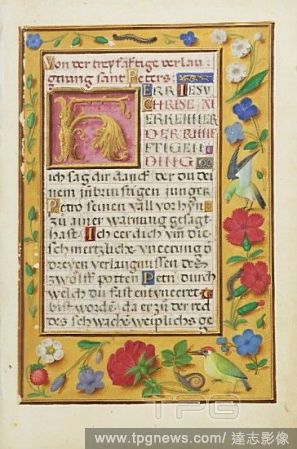 Von der treyfaltige verlau
gnung sant Peters:
HERR IESV
CHRISTE AI
ERKENNER
DER KUNF
FTIGEN
DING
ich sag dir danck der du dei
nem inbrunstigen junger
Petro seinen vall vorhyn
zu ainer warnung gesagt
hast: Ich eer dich vm die
schmertzliche vneerung
dreyen verlaugnussen des
zwölff potten Petri durch
welch du fast entuneeret
bist worden da er zu der red
des schwache weiplichs ge
TPG
www.tpgnews.com/達志影像